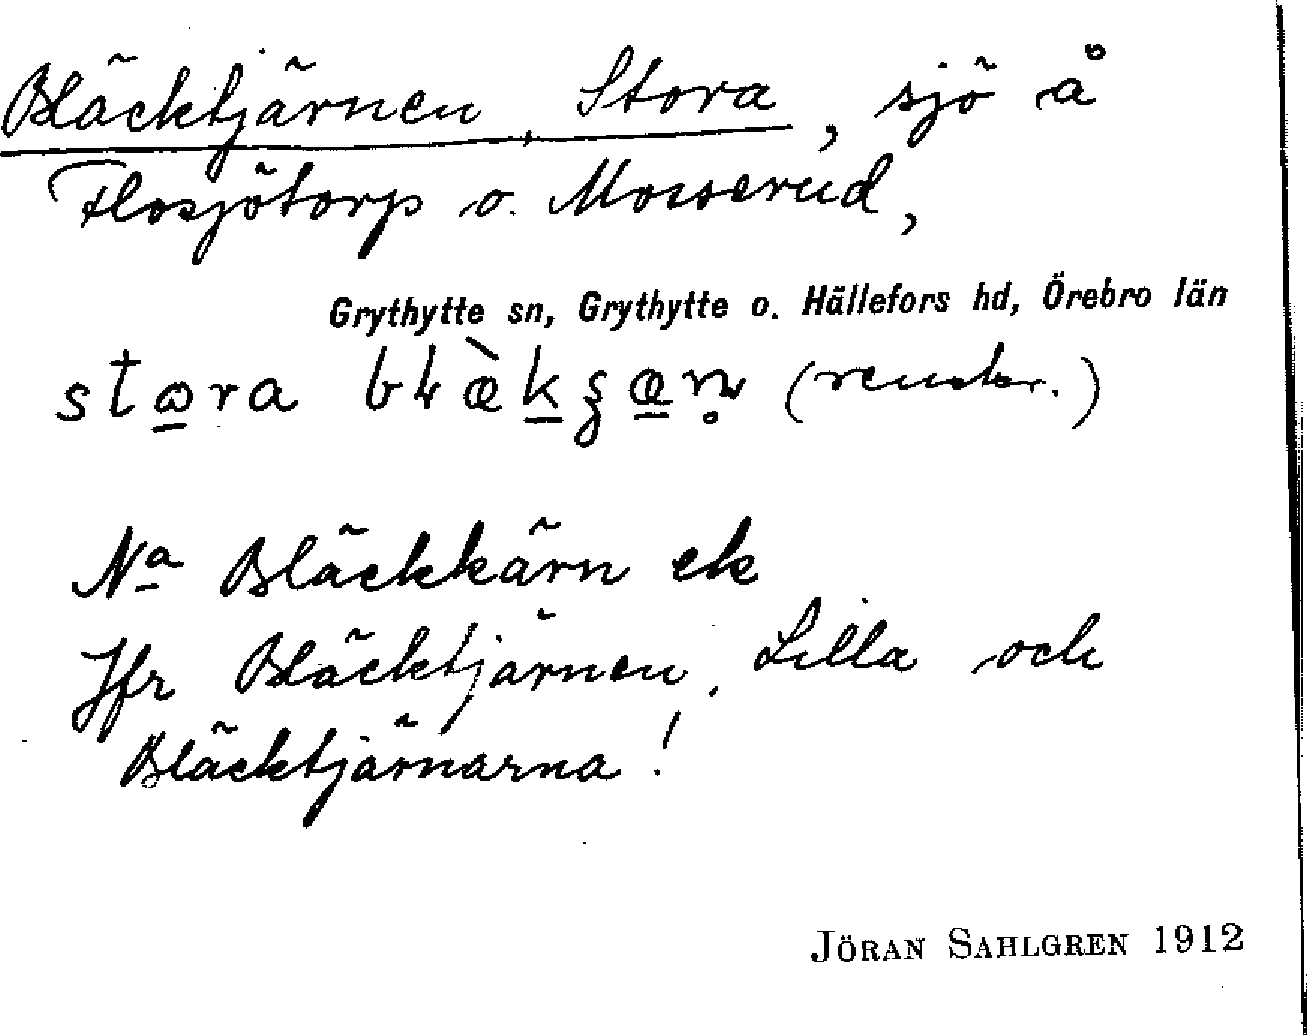 Bläcktjärnen, Stora, sjö å
Flosjötorp o. Mosserud,
Grythytte sn, Grythytte o. Hällefors hd, Örebro län
stora (renskr.)
Nª Bläckkärn ek
Jfr Bläcktjärnen, Lilla och
Bläcktjärnarna!
JÖRAN SAHLGREN 1912